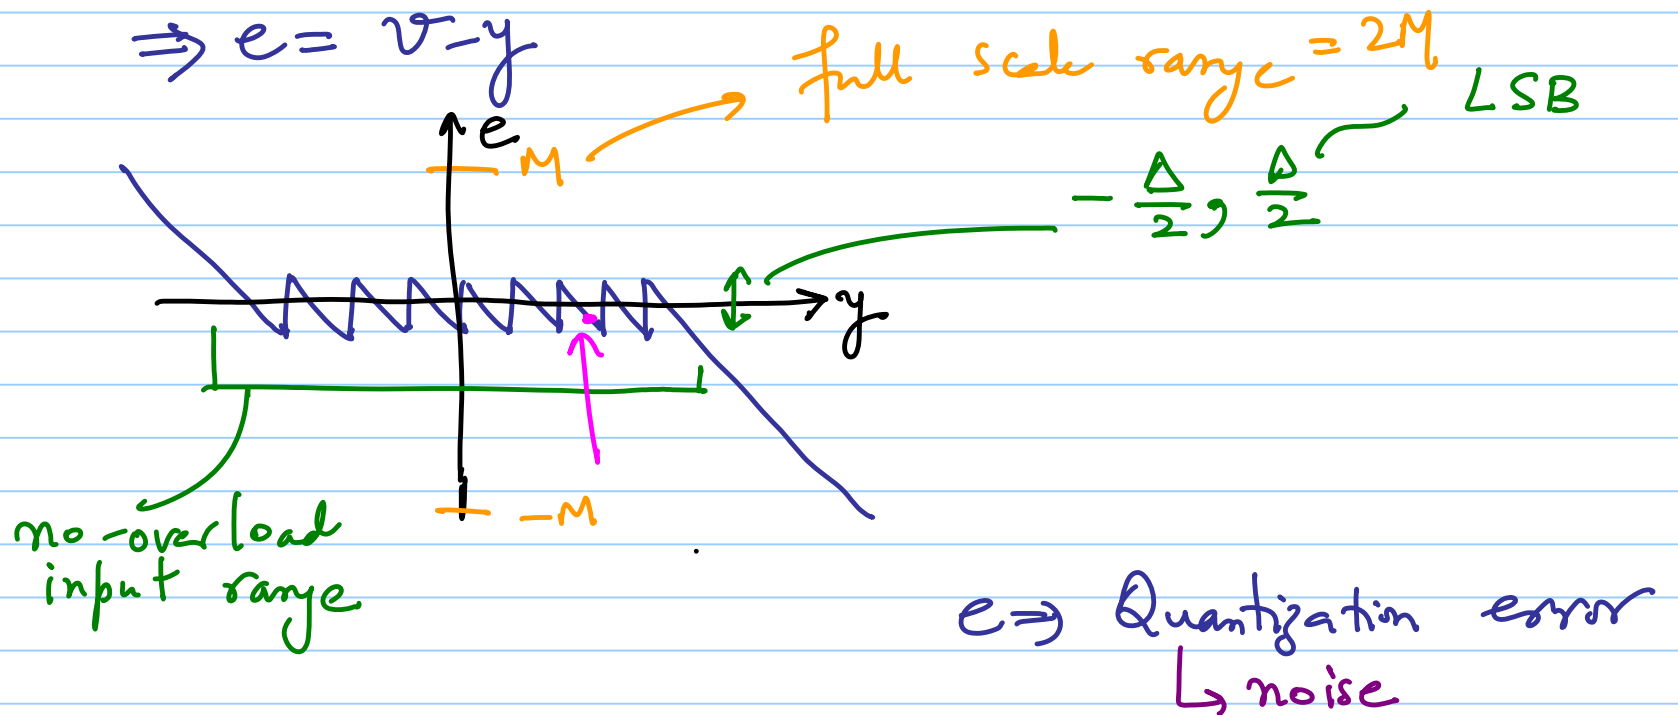 ⇒ e = v - y
full scale range = 2M
LSB
e
M
- Δ/2, Δ/2
y
-M
no-overload
input range
e ⇒ Quantization error
↳ noise